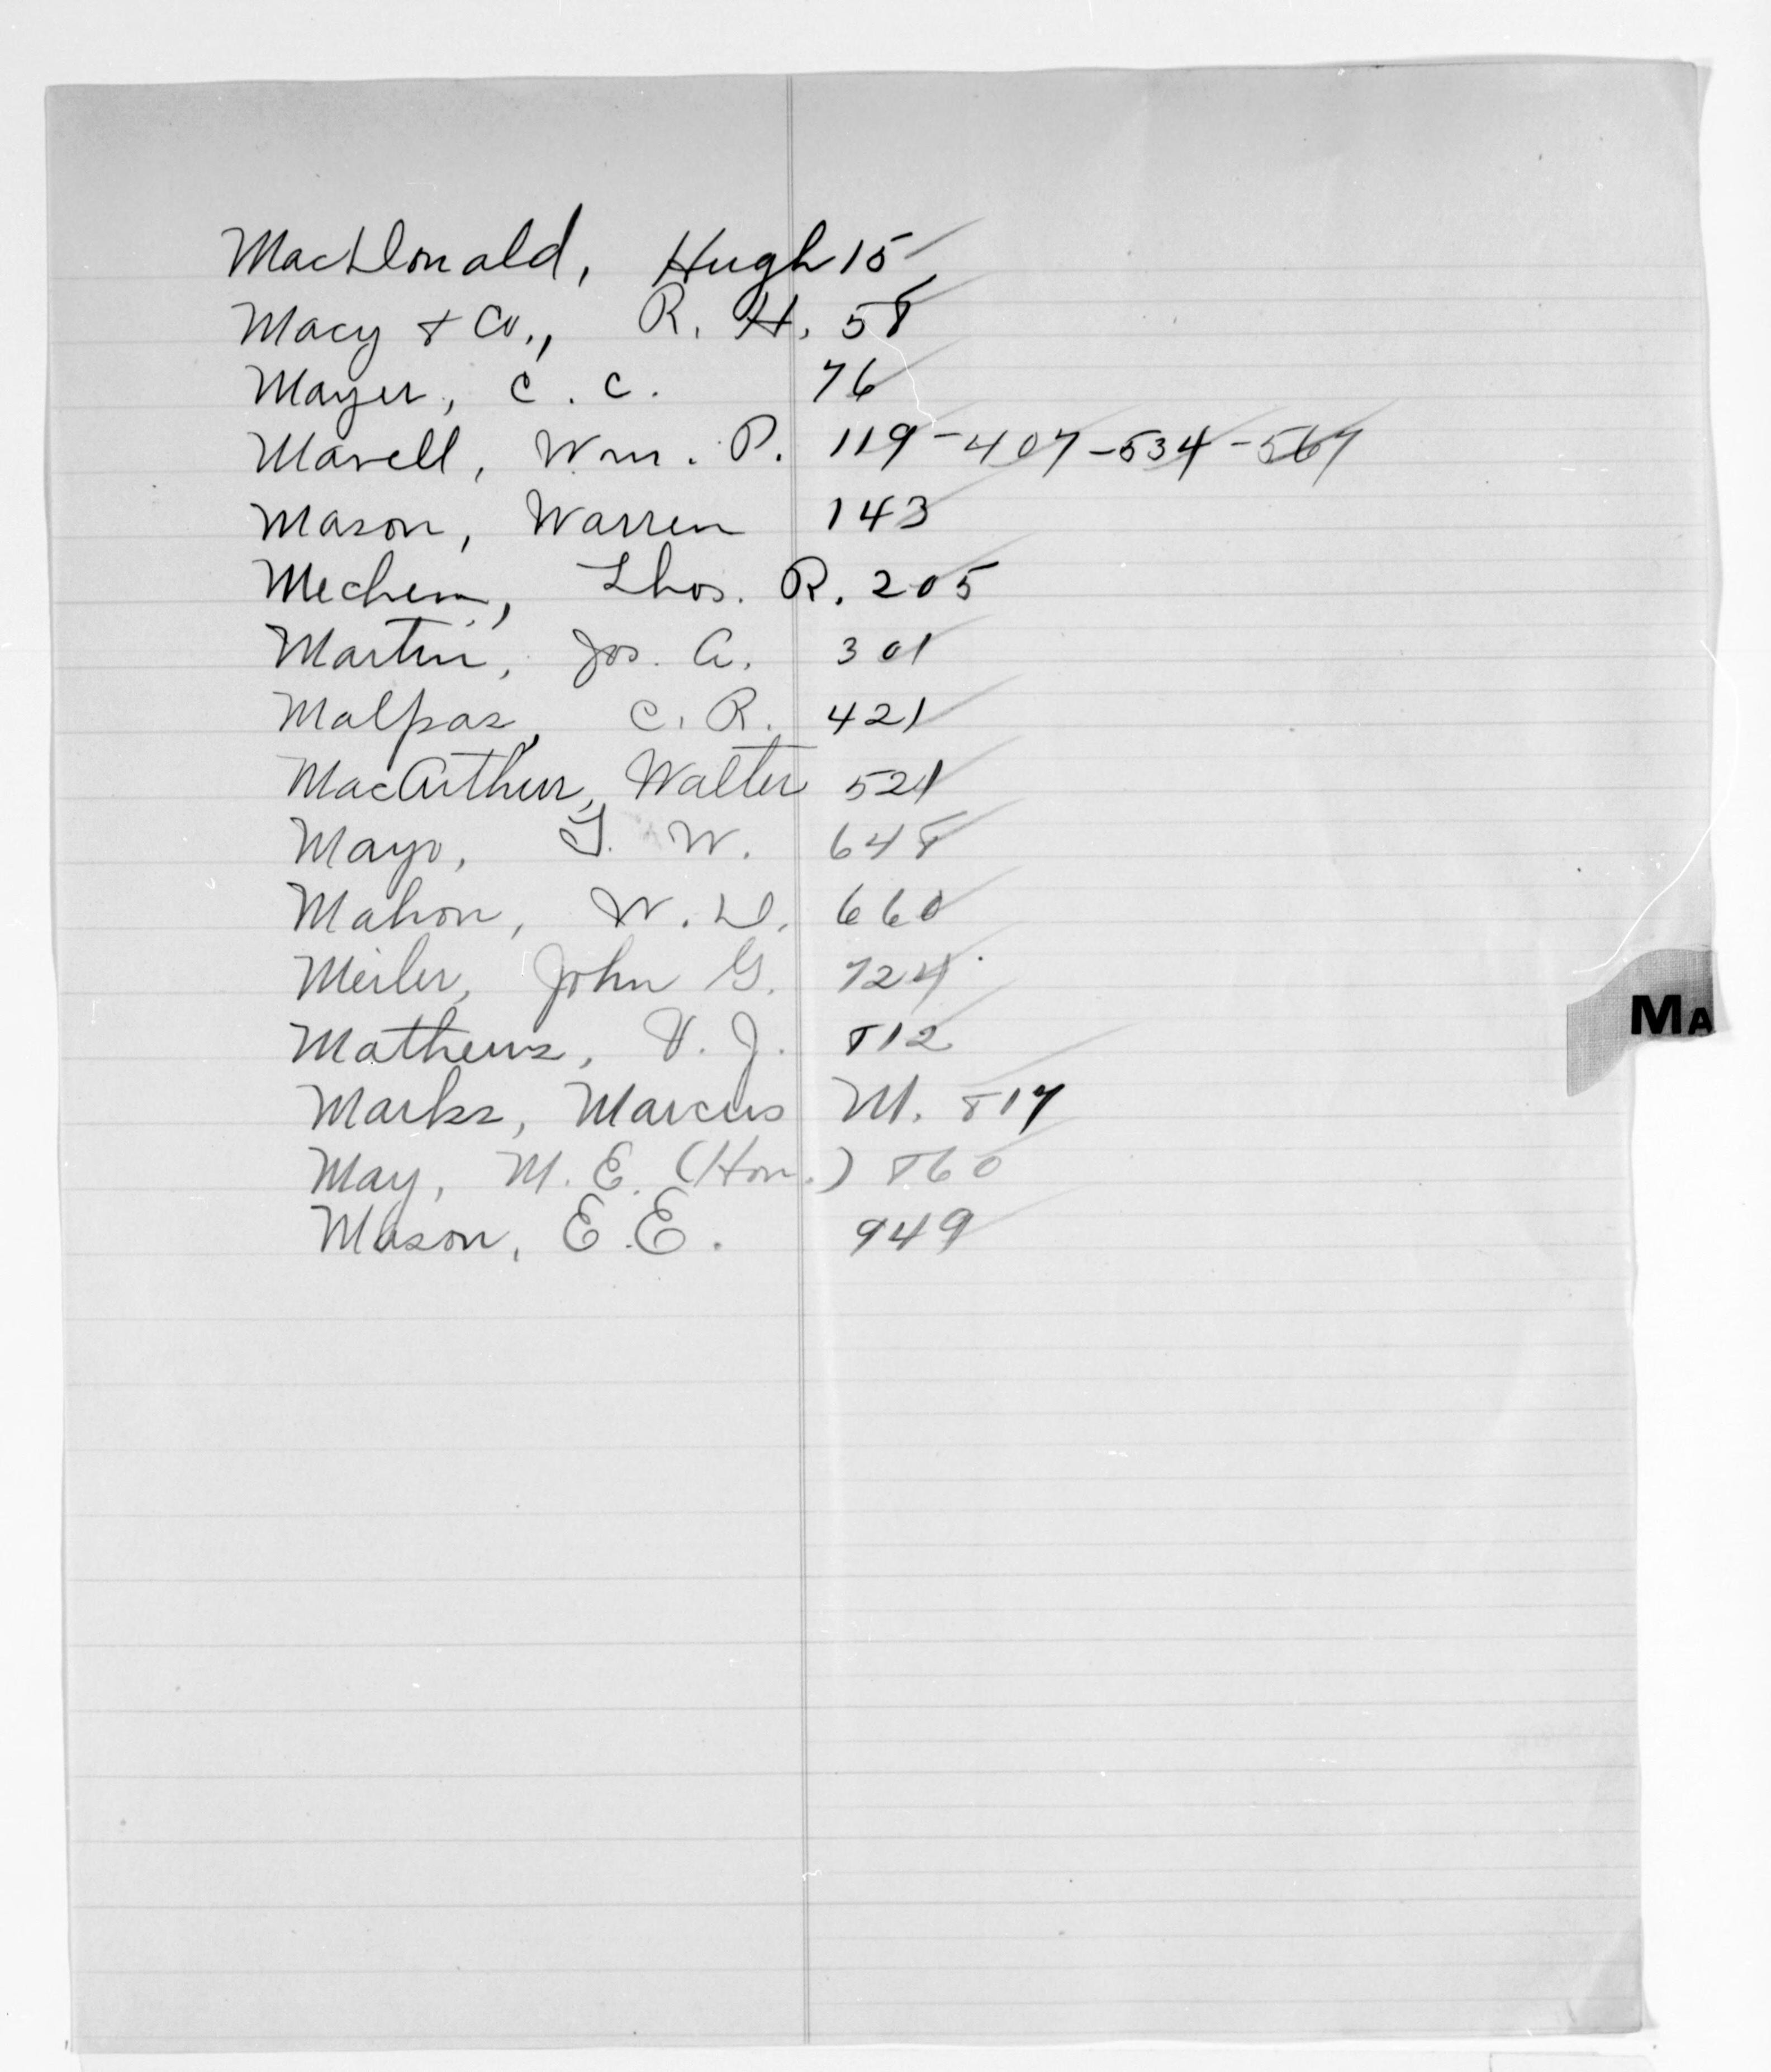 MacDonald, Hugh 15
Macy & Co., R. H. 58
Mayer, C. C. 76
Mavell, Wm. P. 119-407-534-567
Mason, Warren 143
Mechem, Thos. R. 205
Martin, Jos. A. 301
Malpas, C. R. 421
MacArthur, Walter 521
Mayo, G. W. 648
Mahon, W. D. 660
Meiler, John G. 724
Mathews, V. J. 812
Marks, Marcus M. 817
May, M. E. (Hon.) 860
Mason, E. E. 949
MA